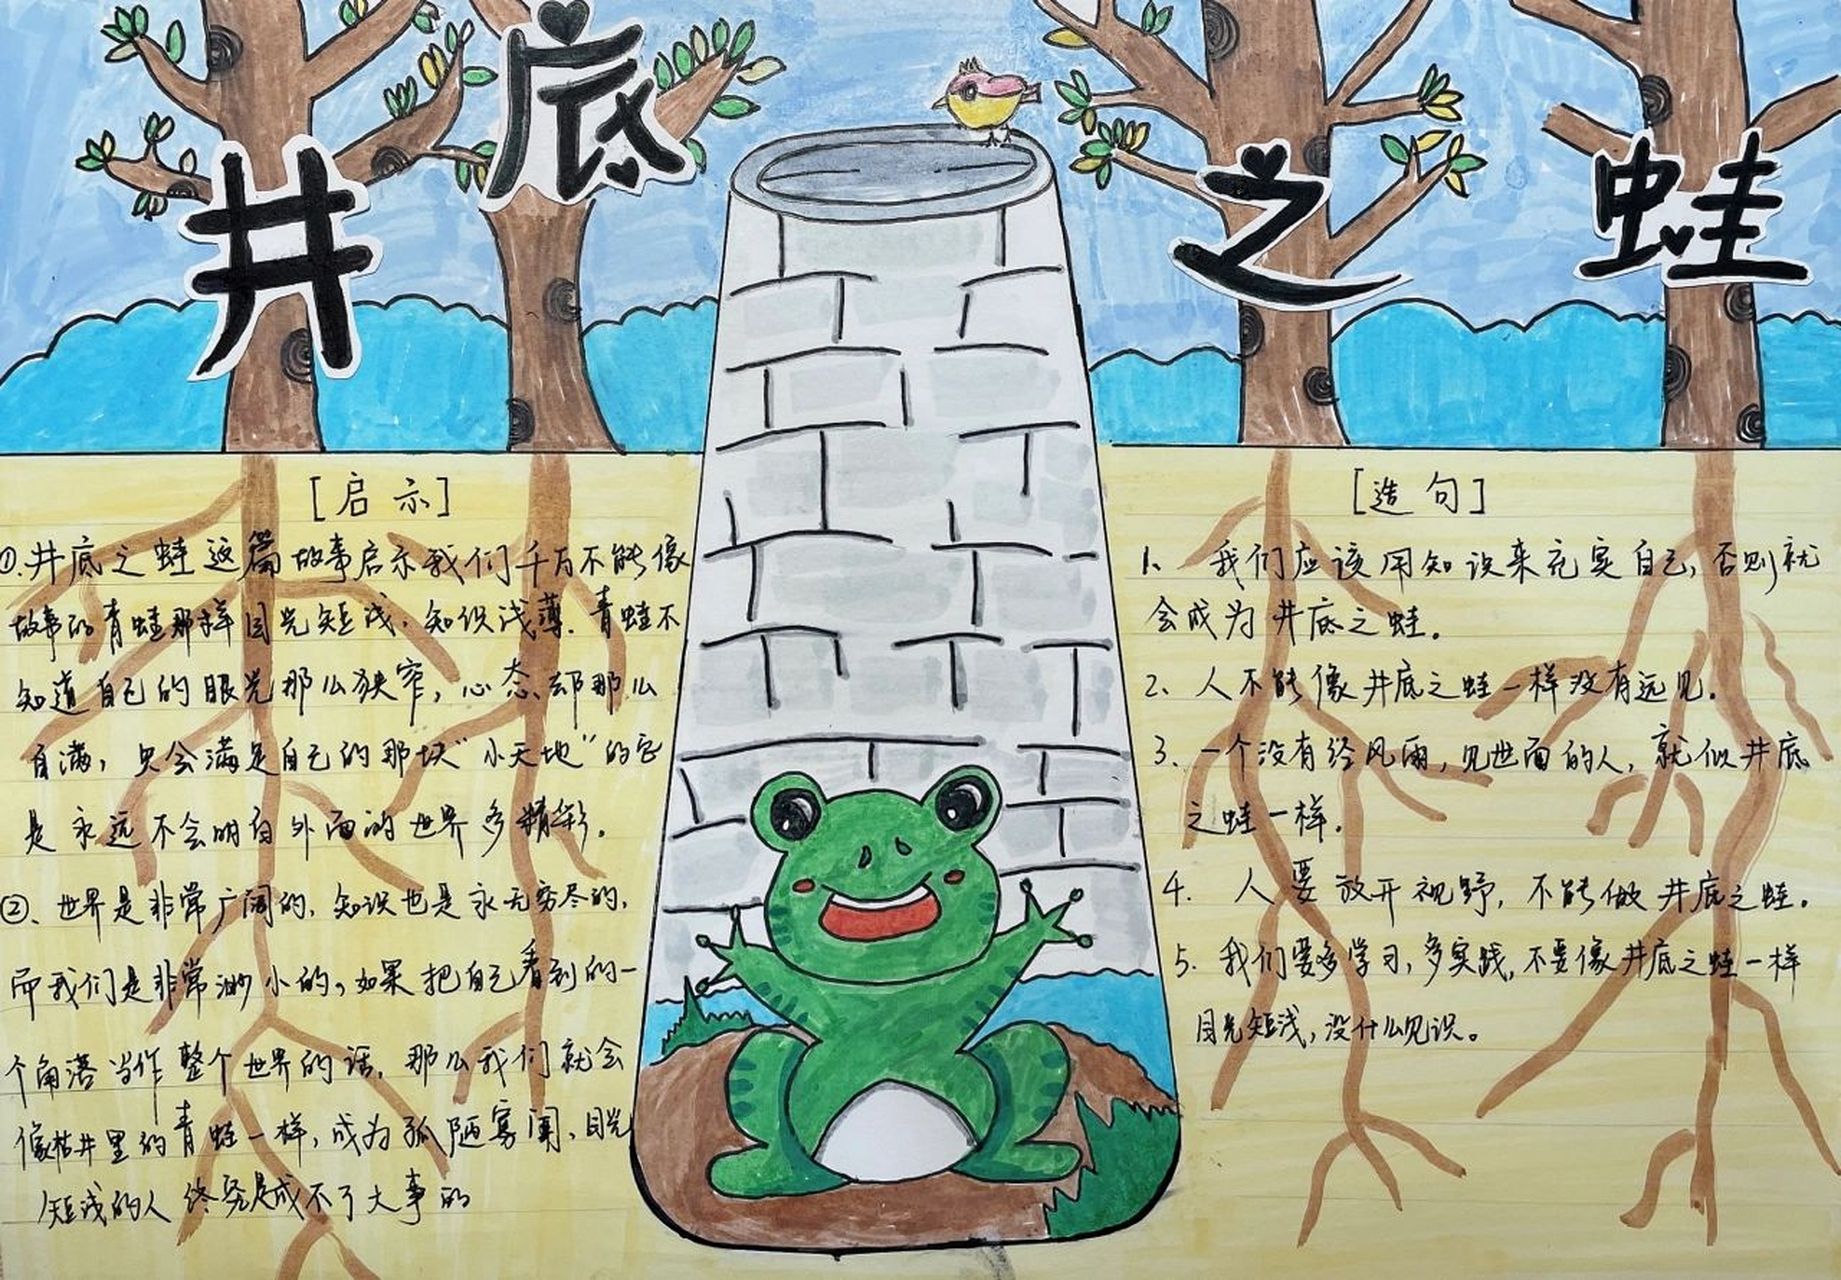 井底之蛙
[启示]
①.井底之蛙这篇故事启示我们千万不能像
故事的青蛙那样目光短浅.知识浅薄.青蛙不
知道自己的眼光那么狭窄,心态却那么
自满,只会满足自己的那块“小天地”的它
是永远不会明白外面的世界多精彩.
②、世界是非常广阔的,知识也是永无穷尽的,
而我们是非常渺小的,如果把自己看到的一
个角落当作整个世界的话,那么我们就会
像枯井里的青蛙一样,成为孤陋寡闻、目光
短浅的人终究是成不了大事的
[造句]
1、我们应该用知识来充实自己,否则就
会成为井底之蛙。
2、人不能像井底之蛙一样没有远见.
3.一个没有经风雨,见世面的人,就似井底
之蛙一样.
4.人要放开视野,不能做井底之蛙。
5.我们要多学习,多实践,不要像井底之蛙一样
目光短浅,没什么见识。